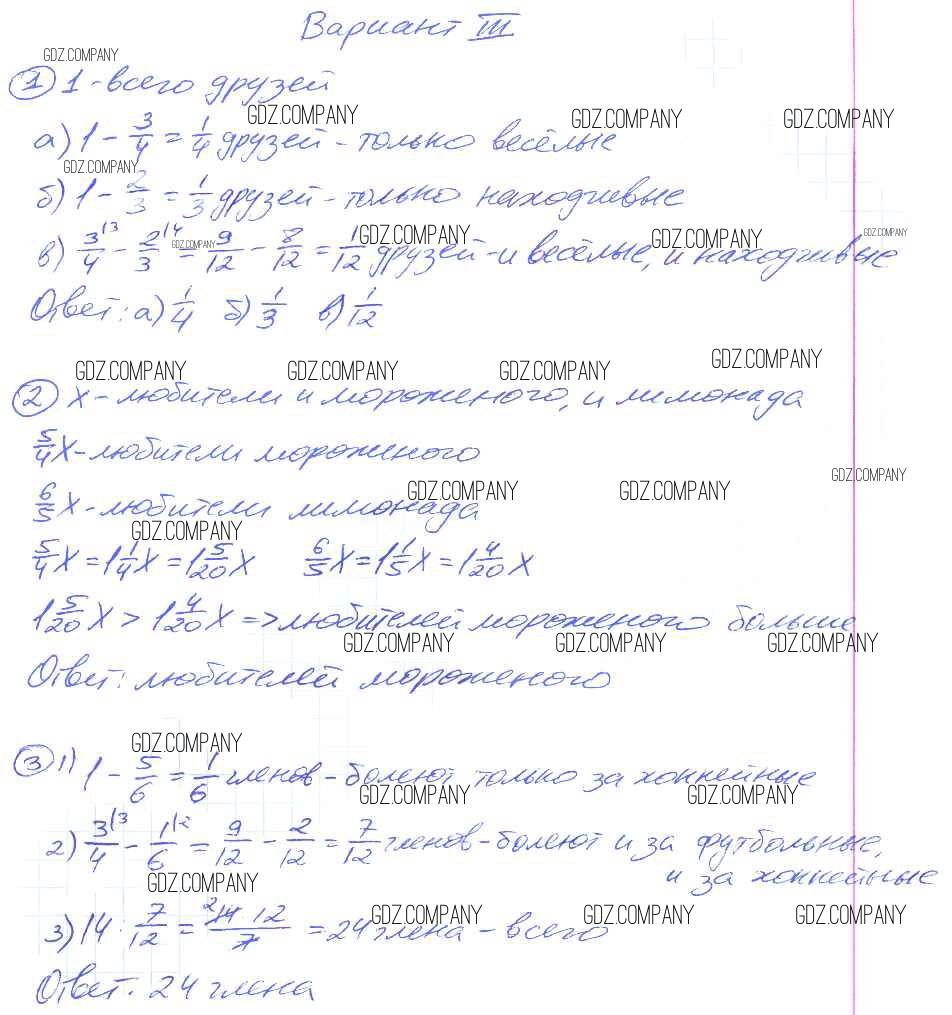 Вариант III
GDZ.COMPANY
① 1 - всего друзей
GDZ.COMPANY GDZ.COMPANY GDZ.COMPANY
а) 1 - 3/4 = 1/4 друзей - только весёлые
GDZ.COMPANY
б) 1 - 2/3 = 1/3 друзей - только находчивые
GDZ.COMPANY GDZ.COMPANY GDZ.COMPANY GDZ.COMPANY
в) 3/4 \3 - 2/3 \4 = 9/12 - 8/12 = 1/12 друзей - и весёлые, и находчивые
Ответ: а) 1/4 б) 1/3 в) 1/12
GDZ.COMPANY GDZ.COMPANY GDZ.COMPANY GDZ.COMPANY
② x - любители и мороженого, и лимонада
5/4 x - любители мороженого
GDZ.COMPANY GDZ.COMPANY GDZ.COMPANY
6/5 x - любители лимонада
GDZ.COMPANY
5/4 x = 1 1/4 x = 1 5/20 x 6/5 x = 1 1/5 x = 1 4/20 x
1 5/20 x > 1 4/20 x => любителей мороженого больше
GDZ.COMPANY GDZ.COMPANY GDZ.COMPANY
Ответ: любителей мороженого
GDZ.COMPANY
③ 1) 1 - 5/6 = 1/6 членов - болеют только за хоккейные
GDZ.COMPANY GDZ.COMPANY
2) 3/4 \3 - 1/6 \2 = 9/12 - 2/12 = 7/12 членов - болеют и за футбольные,
и за хоккейные
GDZ.COMPANY
3) 14 : 7/12 = 2 14 · 12/7 = 24 члена - всего
GDZ.COMPANY GDZ.COMPANY GDZ.COMPANY
Ответ. 24 члена